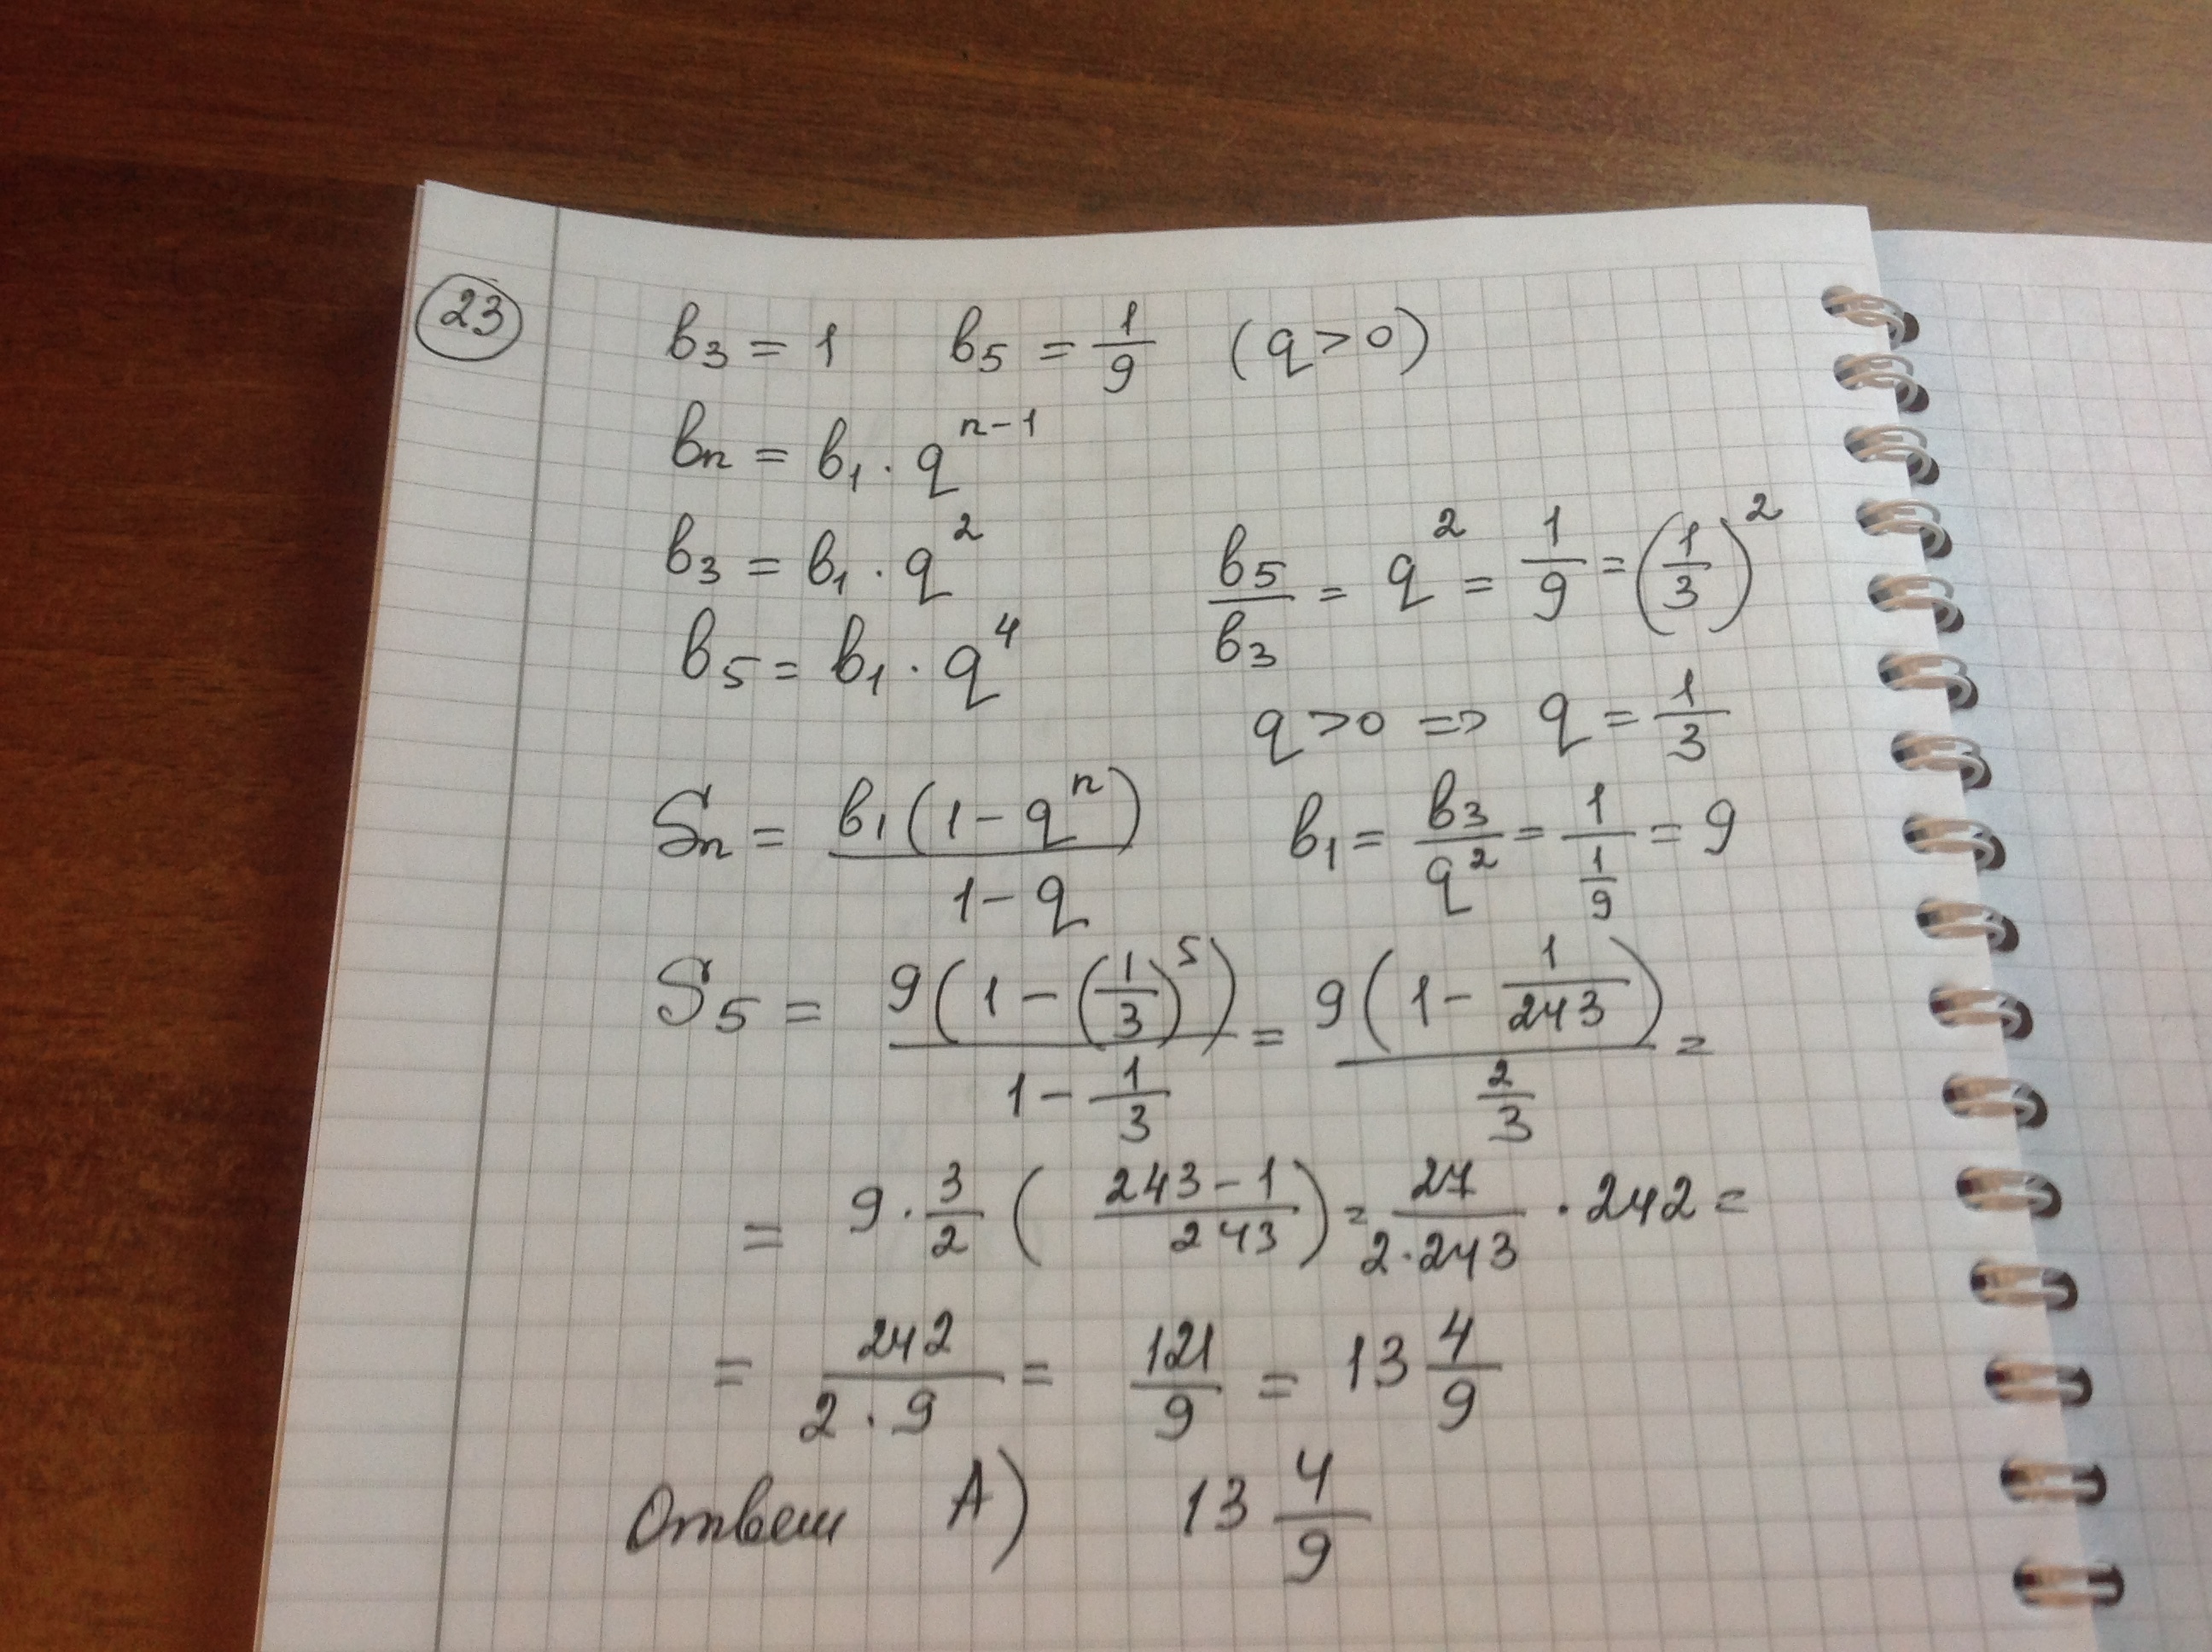 23
b₃ = 1 b₅ = 1/9 (q > 0)
bₙ = b₁ · qⁿ⁻¹
b₃ = b₁ · q²
b₅/b₃ = q² = 1/9 = (1/3)²
b₅ = b₁ · q⁴
q > 0 => q = 1/3
Sₙ = b₁(1 - qⁿ)/(1 - q)
b₁ = b₃/q² = 1/(1/9) = 9
S₅ = 9(1 - (1/3)⁵)/(1 - 1/3) = 9(1 - 1/243)/(2/3) =
= 9 · 3/2 ((243 - 1)/243) = 27/(2 · 243) · 242 =
= 242/(2 · 9) = 121/9 = 13 4/9
Ответ А) 13 4/9